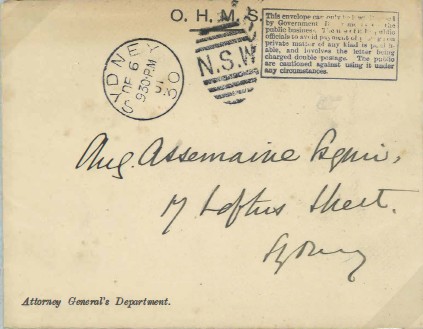 O. H. M. S.
This envelope can only be used
by Government
public business.
officials to avoid payment of postage on
private matter of any kind is punish-
able, and involves the letter being
charged double postage. The public
are cautioned against using it under
any circumstances.
SYDNEY
DE 6
9 30 P.M
91
30
N.S.W
Aug. Assemaine Esquire,
17 Loftus Street.
Sydney
Attorney General's Department.